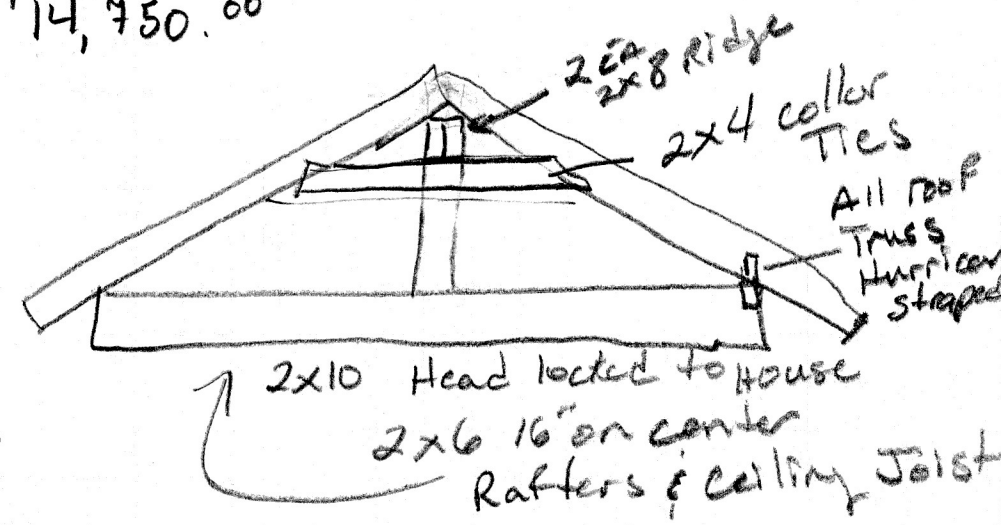 14,750.00
2 EA 2x8 Ridge
2x4 collar
Ties
All roof
Truss
Hurrican
straped
2x10 Head locked to House
2x6 16" on center
Rafters & ceiling Joist